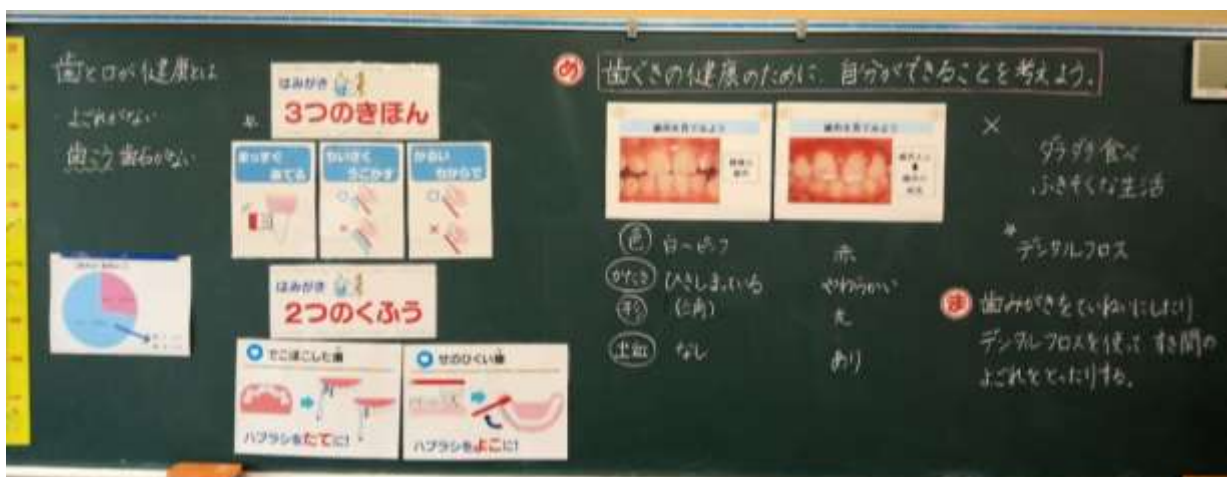 歯と口が健康とは
よごれがない
歯こう 歯石がない
はみがき
3つのきほん
まっすぐ
あてる
ちいさく
うごかす
かるい
ちからで
はみがき
2つのくふう
でこぼこした歯
ハブラシをたてに!
せのひくい歯
ハブラシをよこに!
め 歯ぐきの健康のために、自分ができることを考えよう。
歯肉を見てみよう
歯肉を見てみよう
色 白~ピンク 赤
かたさ ひきしまっている やわらかい
形 (三角) 丸
出血 なし あり
×
ダラダラ食べ
ふきそくな生活
デンタルフロス
ま 歯みがきをていねいにしたり
デンタルフロスを使って すき間の
よごれをとったりする。